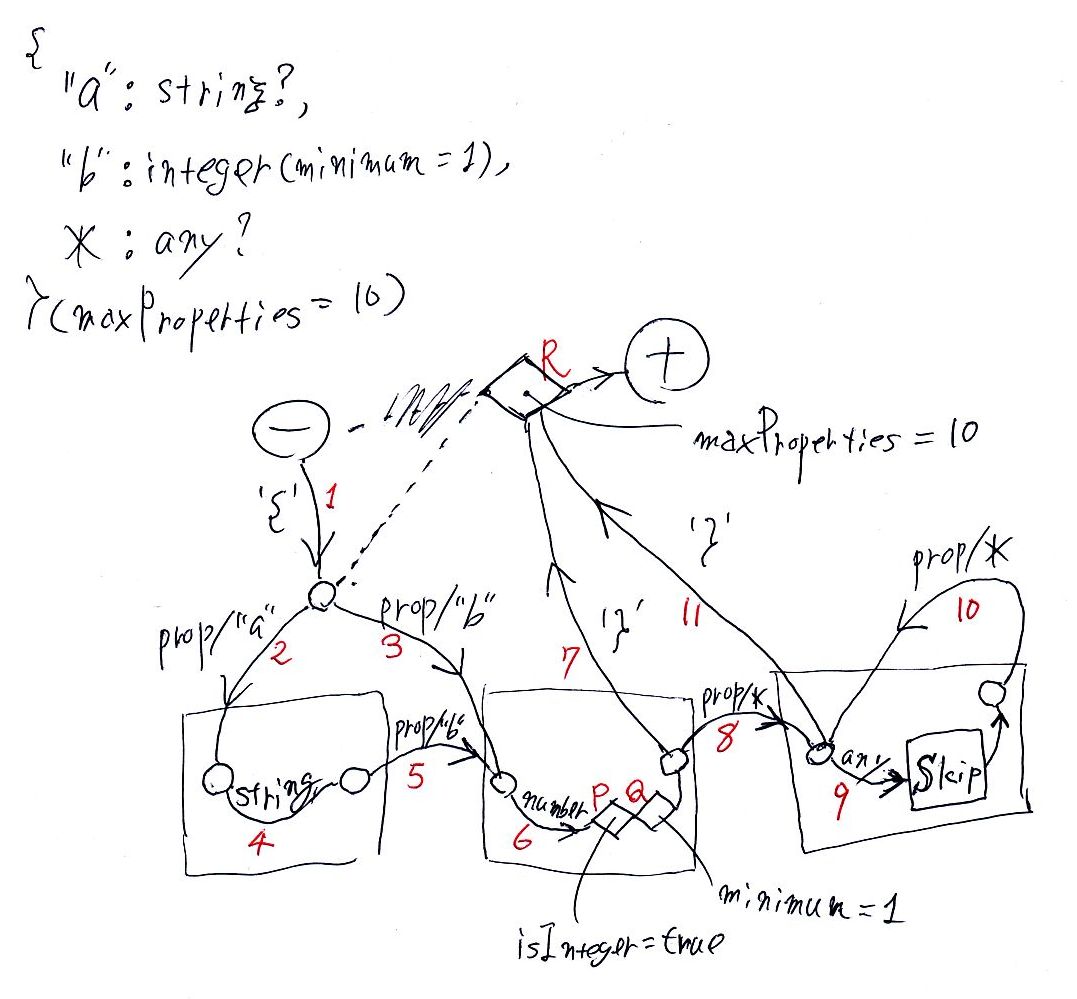 {
"a": string?,
"b": integer(minimum=1),
* : any?
}(maxProperties=10)
R
+
−
maxProperties = 10
'{'
1
'}'
prop/*
prop/"a"
prop/"b"
2
3
'}'
11
10
7
prop/"b"
prop/*
5
8
string
4
number
P
Q
6
any
Skip
9
minimum=1
isInteger=true